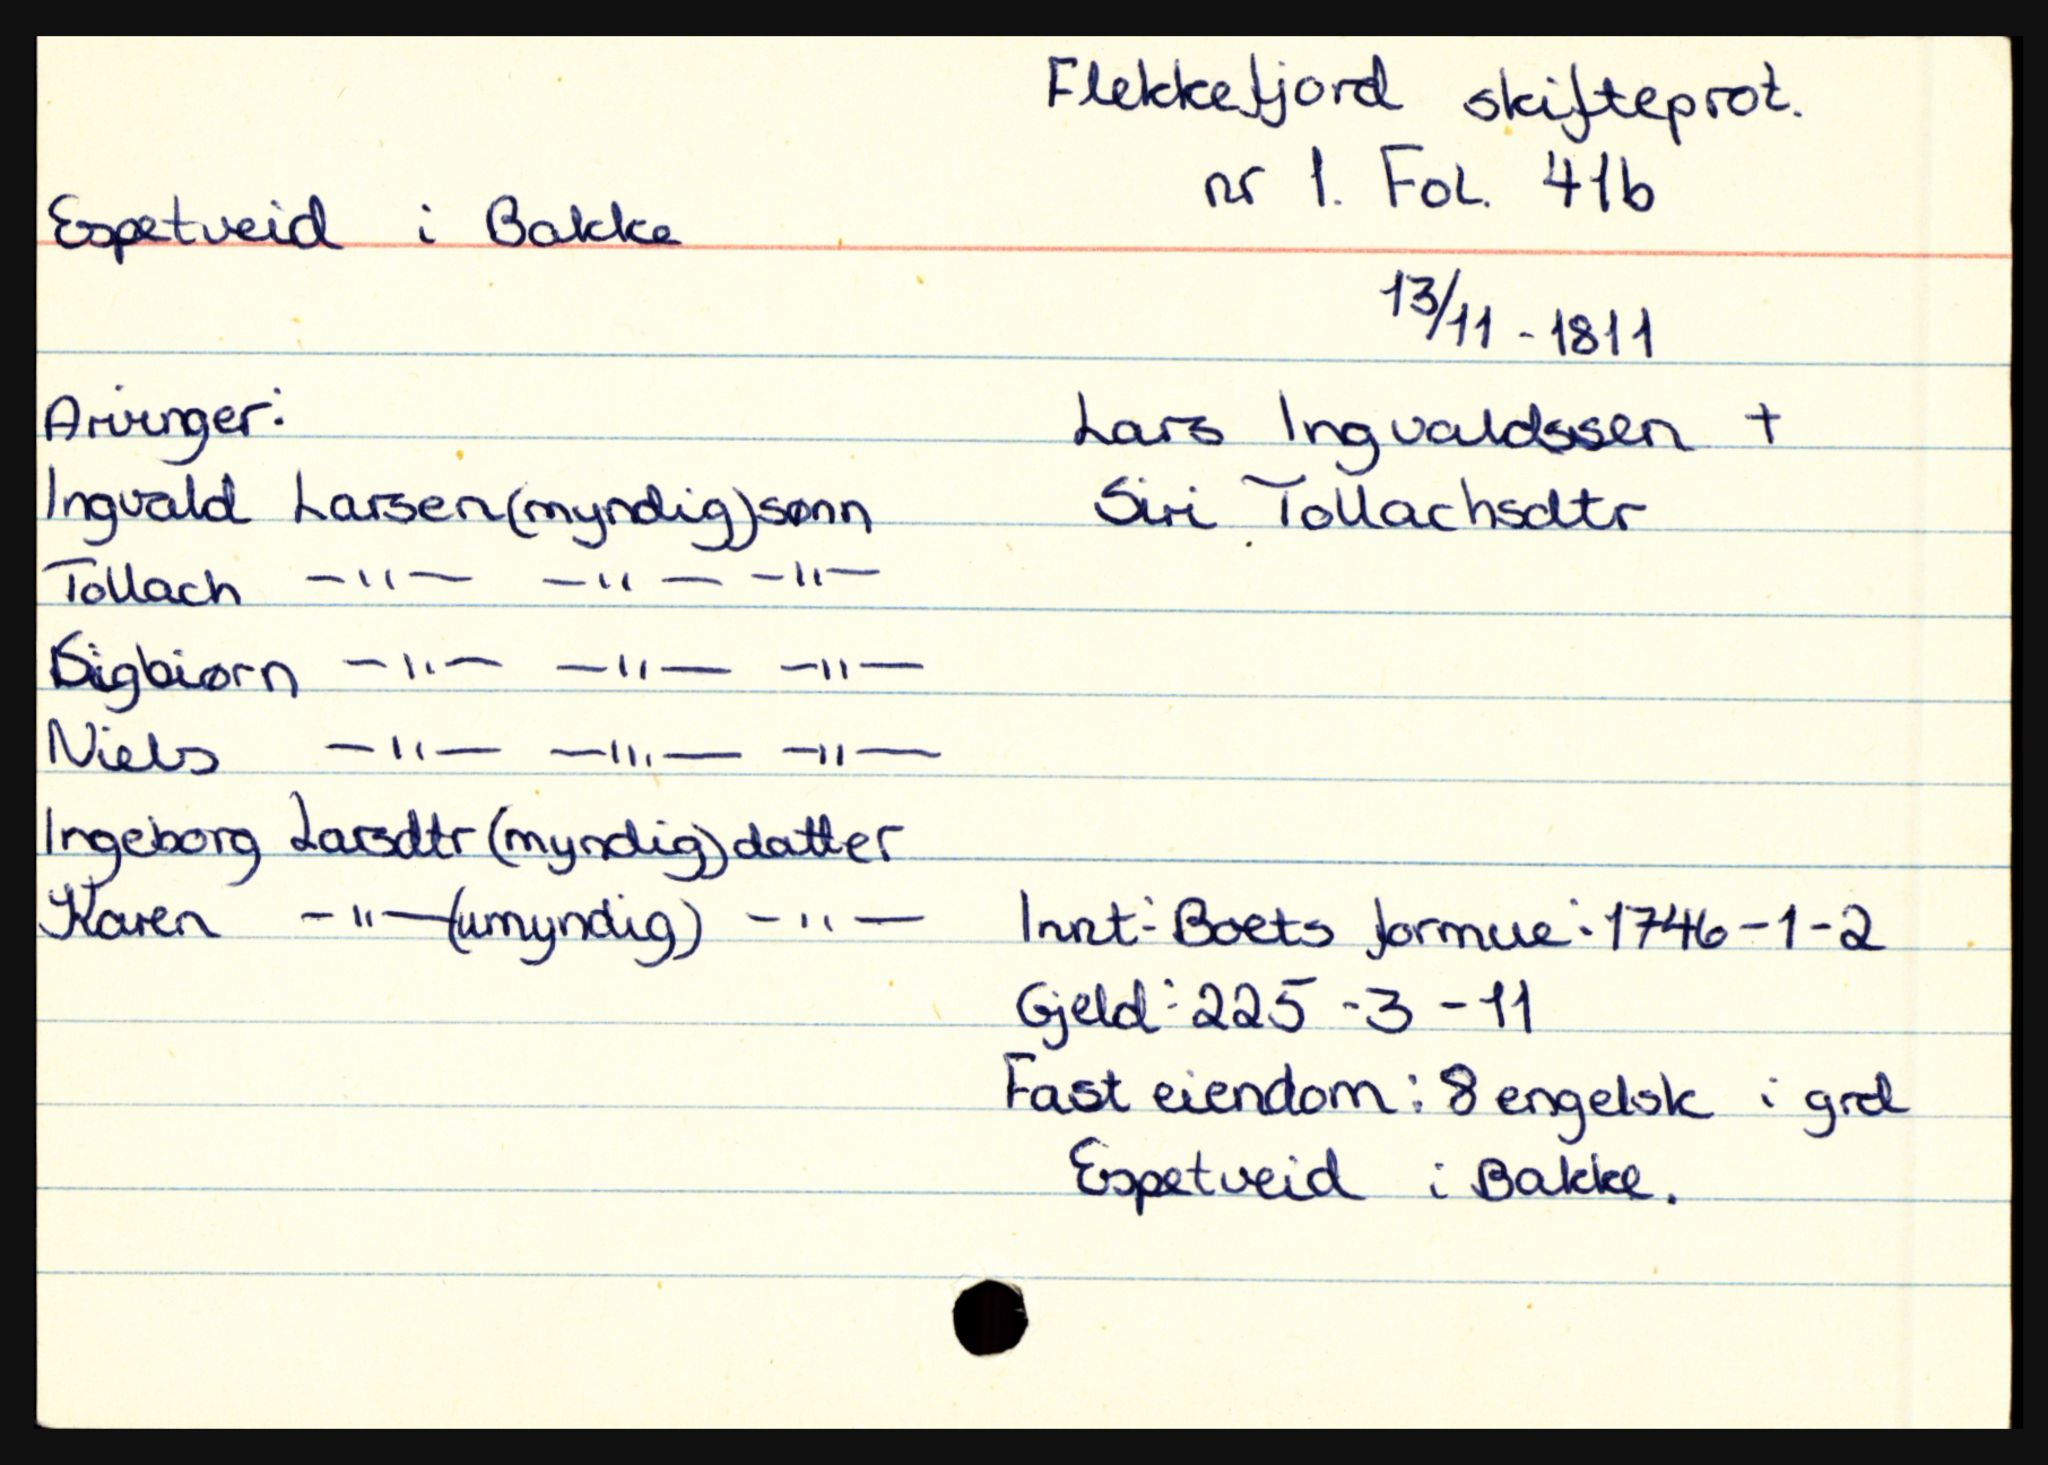 Flekkefjord skifteprot.
nr 1. Fol. 41b
Espetveid i Bakke
13/11 - 1811
Arvinger:
Lars Ingvaldssen +
Ingvald Larsen (myndig) sønn
Siri Tollachsdtr
Tollach —"— —"— —"—
Sigbiørn —"— —"— —"—
Niels —"— —"— —"—
Ingeborg Larsdtr (myndig) datter
Karen —"— (umyndig) —"—
Innt: Boets formue: 1746-1-2
Gjeld: 225 -3 -11
Fast eiendom: 8 engelsk i grd
Espetveid i Bakke.